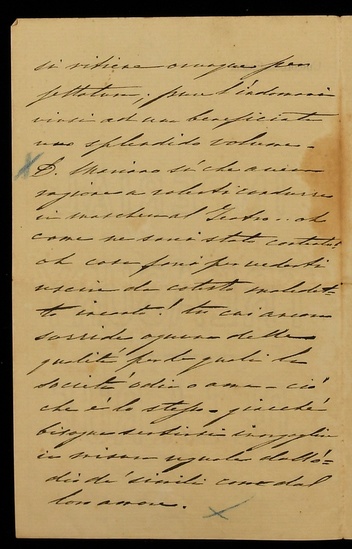 si ritiene ovunque per
jettatura; pure l'indomani
vinsi ad una beneficiata
uno splendido volume.
S. Mariano si che aveva
ragione a volerti condurre
in maschera al Teatro... oh
come ne sarei stata contenta!
oh cosa farei per vederti
uscire da cotesto maledet-
to incanto! tu cui ancora
sorride ognuna delle
qualità per le quali la
società odia o ama - ciò
che è lo stesso, giacché
bisogna sentirsi inorgogliu
in misura uguale dall'ò-
dio de' simili come dal
loro amore.